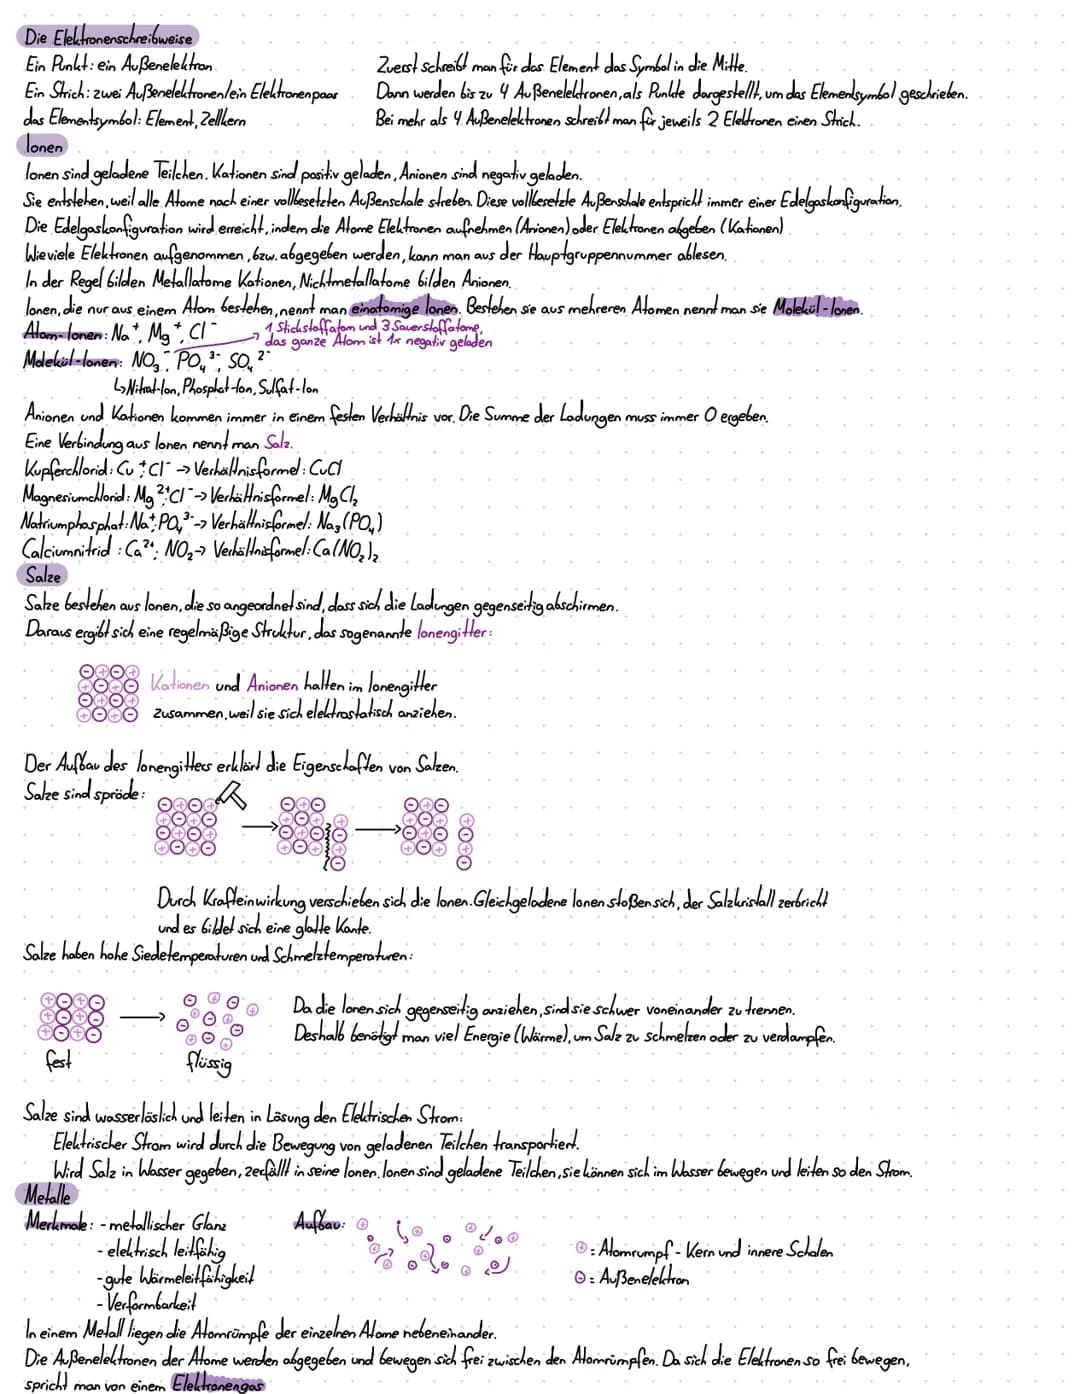 Die Elektronenschreibweise
Ein Punkt: ein Außenelektron
Ein Strich: zwei Außenelektronen/ein Elektronenpaar
das Elementsymbol: Element, Zellkern
Zuerst schreibt man für das Element das Symbol in die Mitte.
Dann werden bis zu 4 Außenelektronen, als Punkte dargestellt, um das Elementsymbol geschrieben.
Bei mehr als 4 Außenelektronen schreibt man für jeweils 2 Elektronen einen Strich.
Ionen
Ionen sind geladene Teilchen. Kationen sind positiv geladen, Anionen sind negativ geladen.
Sie entstehen, weil alle Atome nach einer vollbesetzten Außenschale streben. Diese vollbesetzte Außenschale entspricht immer einer Edelgaskonfiguration.
Die Edelgaskonfiguration wird erreicht, indem die Atome Elektronen aufnehmen (Anionen) oder Elektronen abgeben (Kationen)
Wieviele Elektronen aufgenommen, bzw. abgegeben werden, kann man aus der Hauptgruppennummer ablesen.
In der Regel bilden Metallatome Kationen, Nichtmetallatome bilden Anionen.
Ionen, die nur aus einem Atom bestehen, nennt man einatomige Ionen. Bestehen sie aus mehreren Atomen nennt man sie Molekül-Ionen.
Atom-Ionen: Na⁺, Mg⁺, Cl⁻
1 Stickstoffatom und 3 Sauerstoffatome,
das ganze Atom ist 1x negativ geladen
Molekül-Ionen: NO₃⁻, PO₄³⁻, SO₄²⁻
↳ Nitrat-Ion, Phosphat-Ion, Sulfat-Ion
Anionen und Kationen kommen immer in einem festen Verhältnis vor. Die Summe der Ladungen muss immer 0 ergeben.
Eine Verbindung aus Ionen nennt man Salz.
Kupferchlorid: Cu⁺; Cl⁻ → Verhältnisformel: CuCl
Magnesiumchlorid: Mg²⁺; Cl⁻ → Verhältnisformel: MgCl₂
Natriumphosphat: Na⁺; PO₄³⁻ → Verhältnisformel: Na₃(PO₄)
Calciumnitrid: Ca²⁺; NO₂ → Verhältnisformel: Ca(NO₂)₂
Salze
Salze bestehen aus Ionen, die so angeordnet sind, dass sich die Ladungen gegenseitig abschirmen.
Daraus ergibt sich eine regelmäßige Struktur, das sogenannte Ionengitter:
Kationen und Anionen halten im Ionengitter
zusammen, weil sie sich elektrostatisch anziehen.
Der Aufbau des Ionengitters erklärt die Eigenschaften von Salzen.
Salze sind spröde:
Durch Krafteinwirkung verschieben sich die Ionen. Gleichgeladene Ionen stoßen sich, der Salzkristall zerbricht
und es bildet sich eine glatte Kante.
Salze haben hohe Siedetemperaturen und Schmelztemperaturen:
Da die Ionen sich gegenseitig anziehen, sind sie schwer voneinander zu trennen.
Deshalb benötigt man viel Energie (Wärme), um Salz zu schmelzen oder zu verdampfen.
fest
flüssig
Salze sind wasserlöslich und leiten in Lösung den Elektrischen Strom:
Elektrischer Strom wird durch die Bewegung von geladenen Teilchen transportiert.
Wird Salz in Wasser gegeben, zerfällt in seine Ionen. Ionen sind geladene Teilchen, sie können sich im Wasser bewegen und leiten so den Strom.
Metalle
Merkmale: - metallischer Glanz
- elektrisch leitfähig
- gute Wärmeleitfähigkeit
- Verformbarkeit
Aufbau:
⊕ = Atomrumpf - Kern und innere Schalen
⊖ = Außenelektron
In einem Metall liegen die Atomrümpfe der einzelnen Atome nebeneinander.
Die Außenelektronen der Atome werden abgegeben und bewegen sich frei zwischen den Atomrümpfen. Da sich die Elektronen so frei bewegen,
spricht man von einem Elektronengas